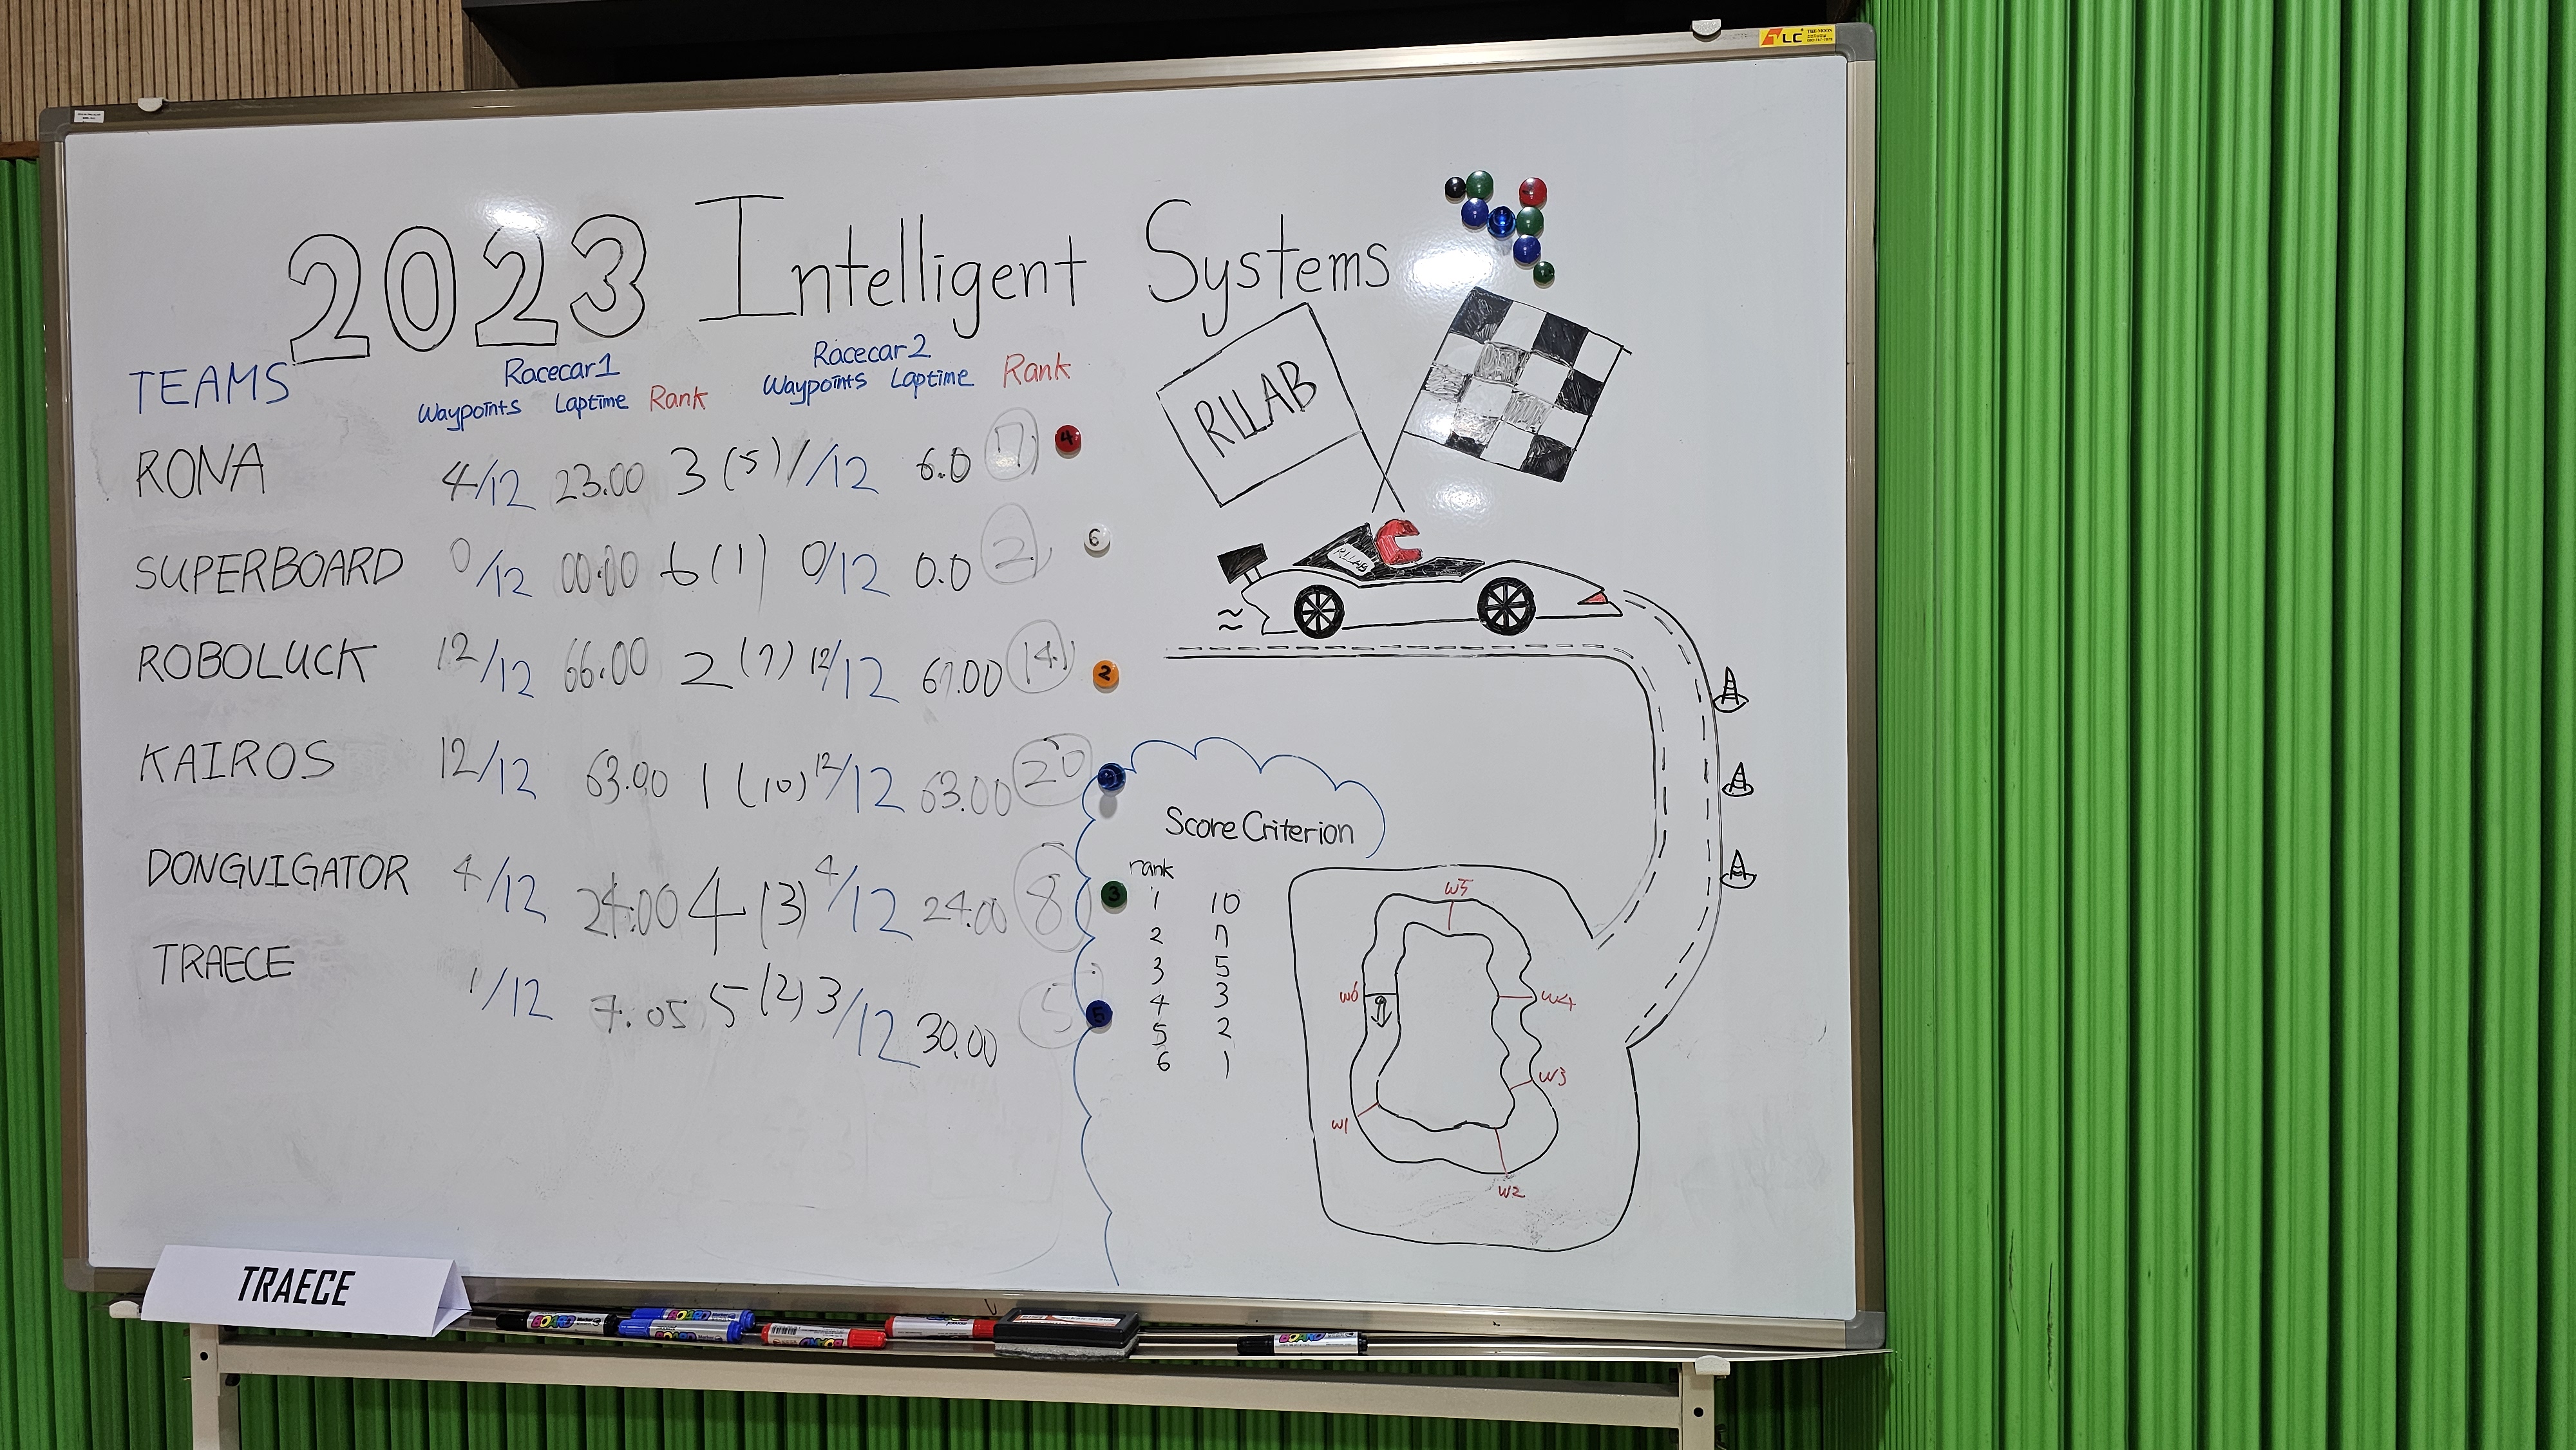 2023 Intelligent Systems
TEAMS Racecar1 Racecar2
Waypoints Laptime Rank Waypoints Laptime Rank
RONA 4/12 23.00 3 (5) 1/12 6.0 7 4
SUPERBOARD 0/12 00.00 6 (1) 0/12 0.0 2 6
ROBOLUCK 12/12 66.00 2 (7) 12/12 67.00 14 2
KAIROS 12/12 63.00 1 (10) 12/12 63.00 20
DONGVIGATOR 4/12 24.00 4 (3) 4/12 24.00 8 3
TRAECE 1/12 7.05 5 (2) 3/12 30.00 5 5
RLLAB
RLLAB
Score Criterion
rank
1 10
2 7
3 5
4 3
5 2
6 1
W5
W6 W4
W3
W1
W2
TRAECE
BOARD
BOARD
BOARD
BOARD
BOARD
LC
THE MOON